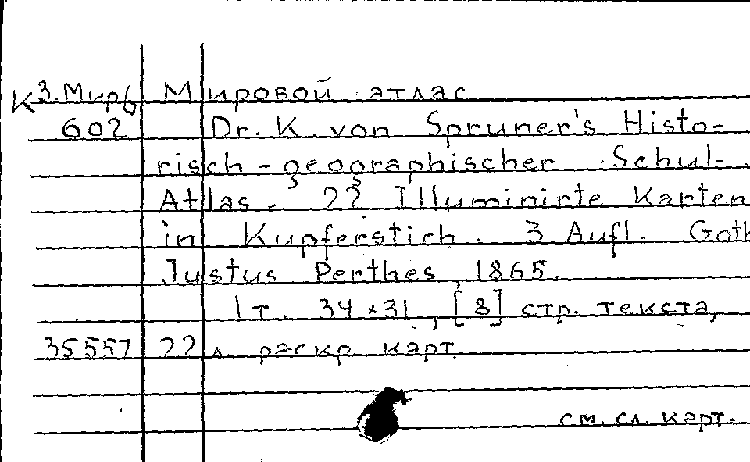 К3.Мир6 Мировой атлас
602 Dr. K. von Spruner's Histo-
risch-geographischer Schul-
Atlas. 22 Illuminirte Karten
in Kupferstich. 3 Aufl. Goth
Justus Perthes, 1865.
1 т. 34×31, [8] стр. текста,
35557 22 л. раскр. карт
см. сл. карт.